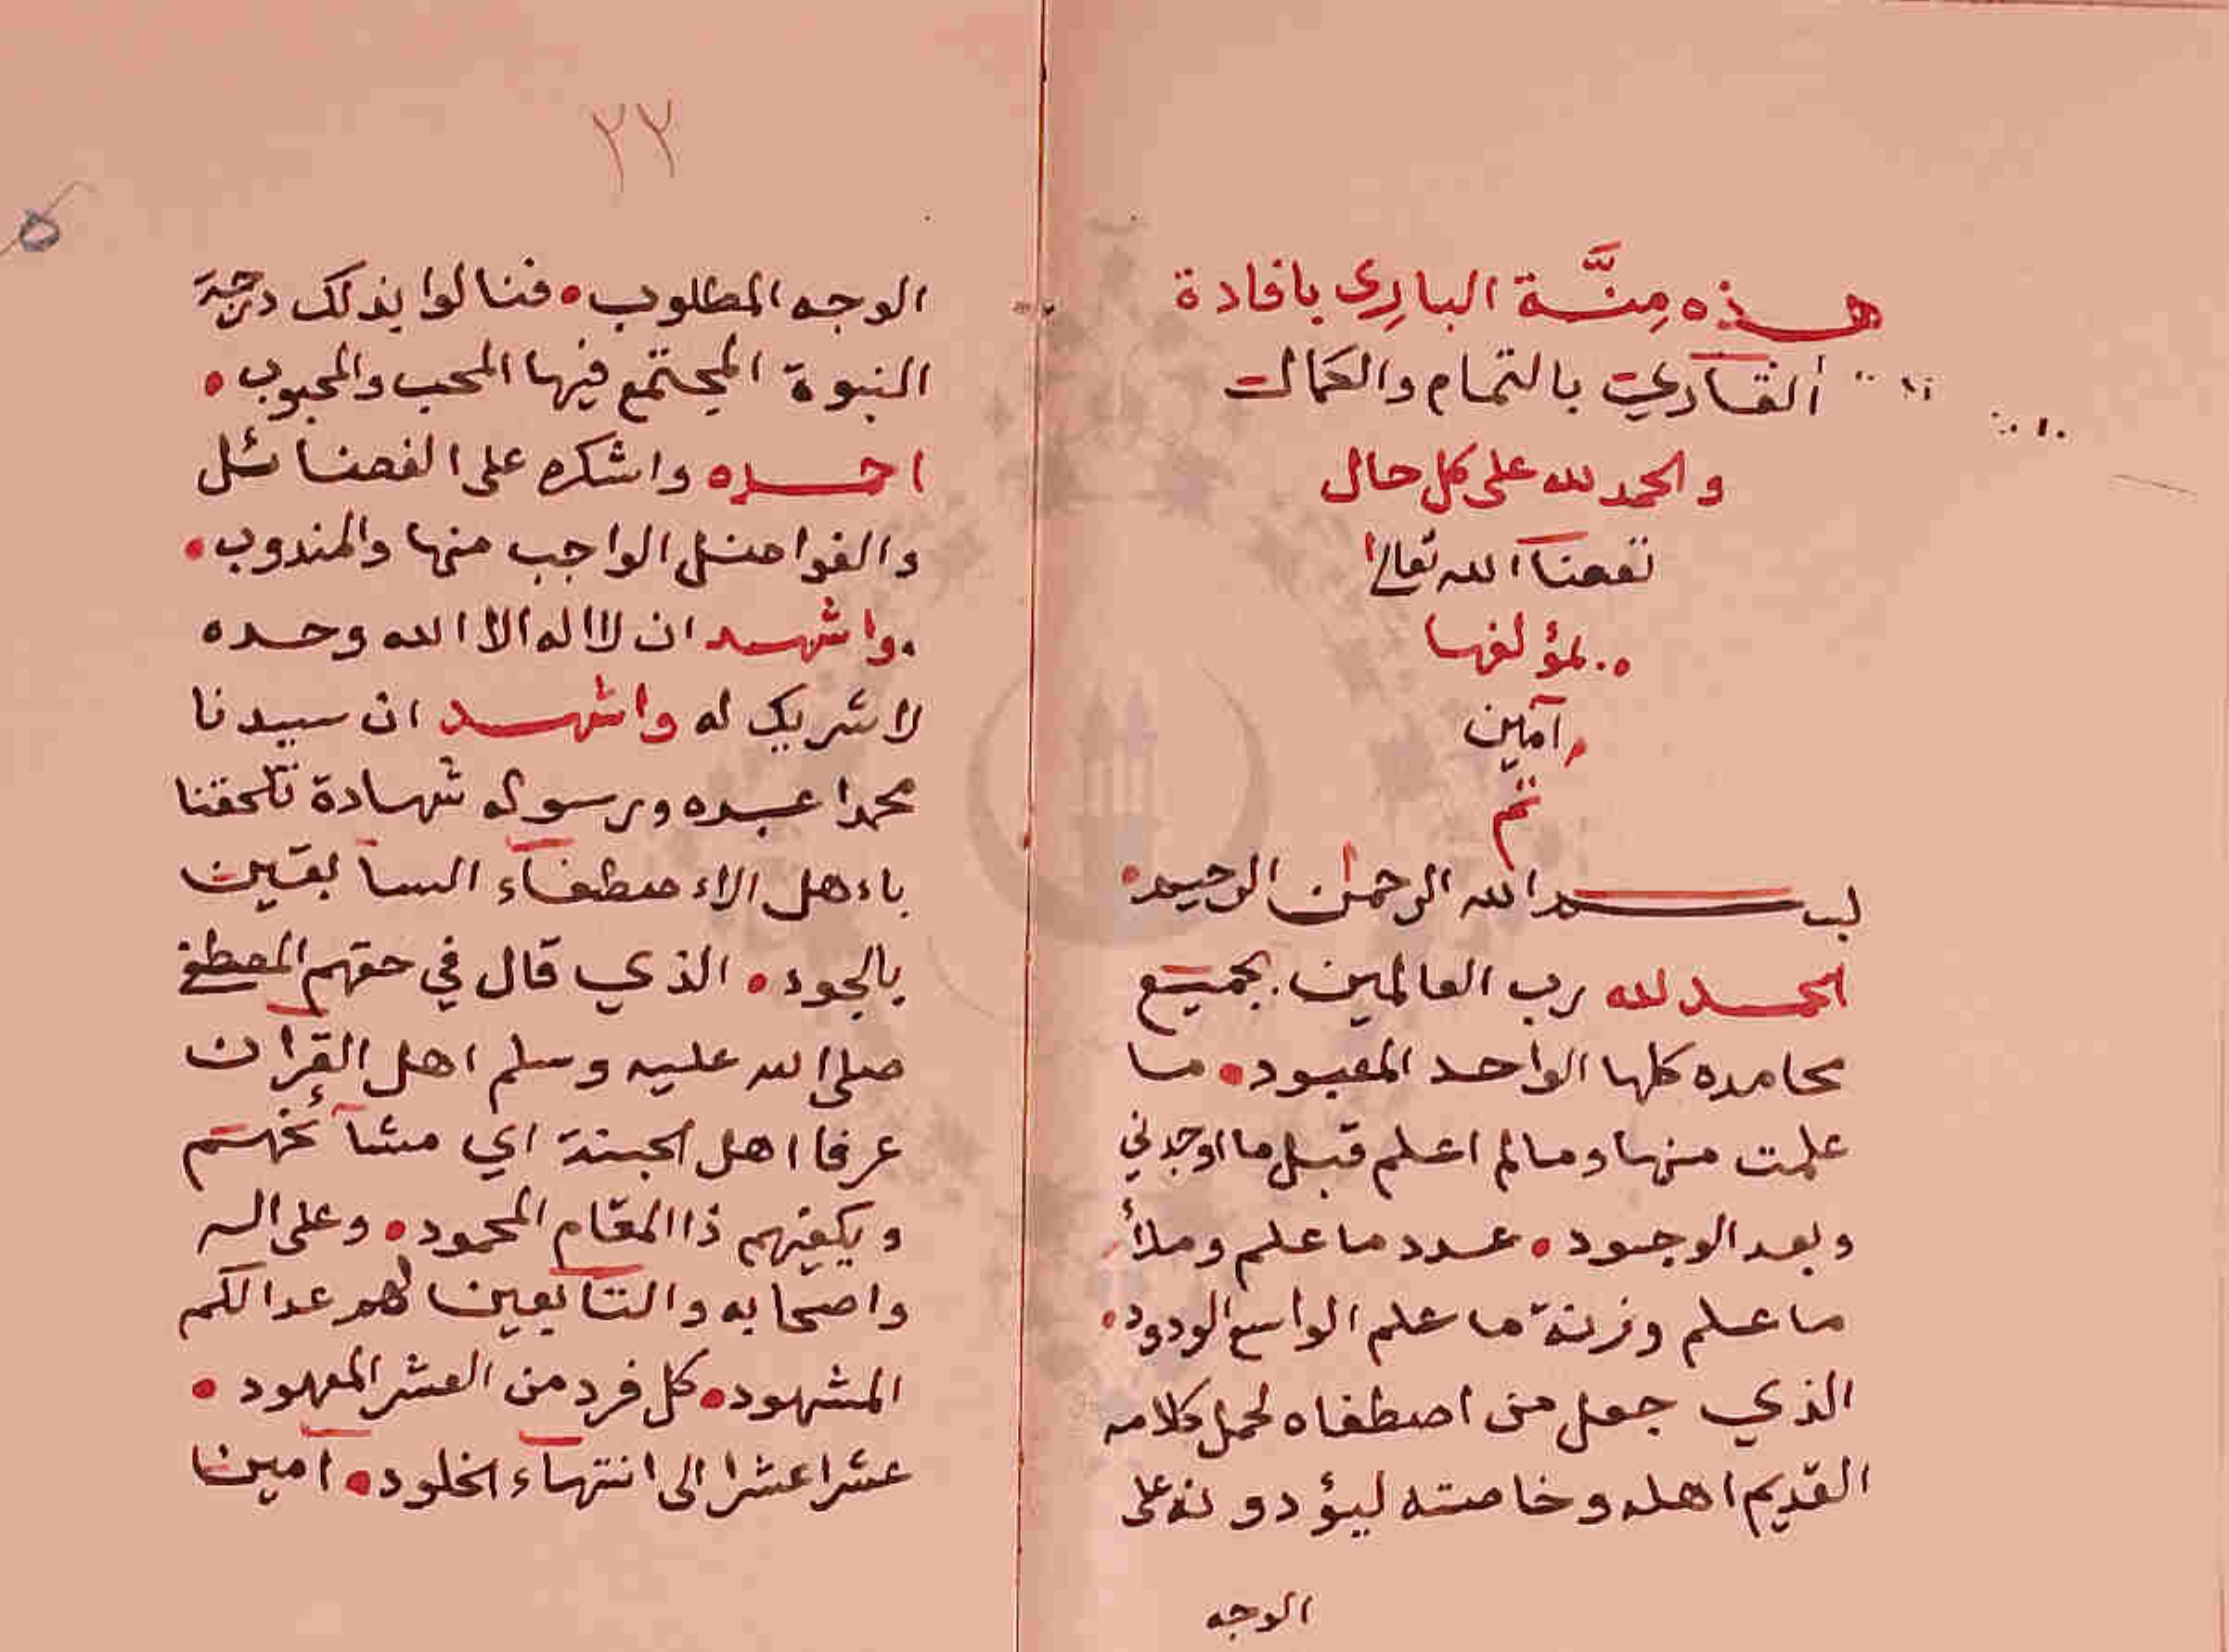 هذه مِنَّة البارِى بافادة
ألقاري بالتمام والكمال
والحمد لله على كل حال
نفعنا الله تعالى
لمؤلفها
آمين
تم
بسم الله الرحمن الرحيم
الحمد لله رب العالمين بجميع
محامده كلها الواحد المعبود ما
علمت منها ومالم اعلم قبل ما اوجدني
وبعد الوجود عدد ما علم وملأ
ما علم وزنة ما علم الواسع الودود
الذي جعل من اصطفاه لحمل كلامه
القديم اهله وخاصته ليؤدونه على
الوجه
٢٢
الوجه المطلوب فنالوا بذلك درجة
النبوة المجتمع فيها المحب والمحبوب
احمده واشكره على الفضائل
والفواضل الواجب منها والمندوب
واشهد ان لا اله الا الله وحده
لا شريك له واشهد ان سيدنا
محمدا عبده ورسوله شهادة تلحقنا
باءهل الاءصطفاء السابقين
بالجود الذي قال في حقهم المصطفى
صلى الله عليه وسلم اهل القران
عرفا اهل الجنة اي مشآئخهم
ويكفيهم ذا المقام المحمود وعلى اله
واصحابه والتابعين لهم عدا لكم
المشهود كل فرد من العشر المعهود
عشرا عشرا الى انتهاء الخلود امين